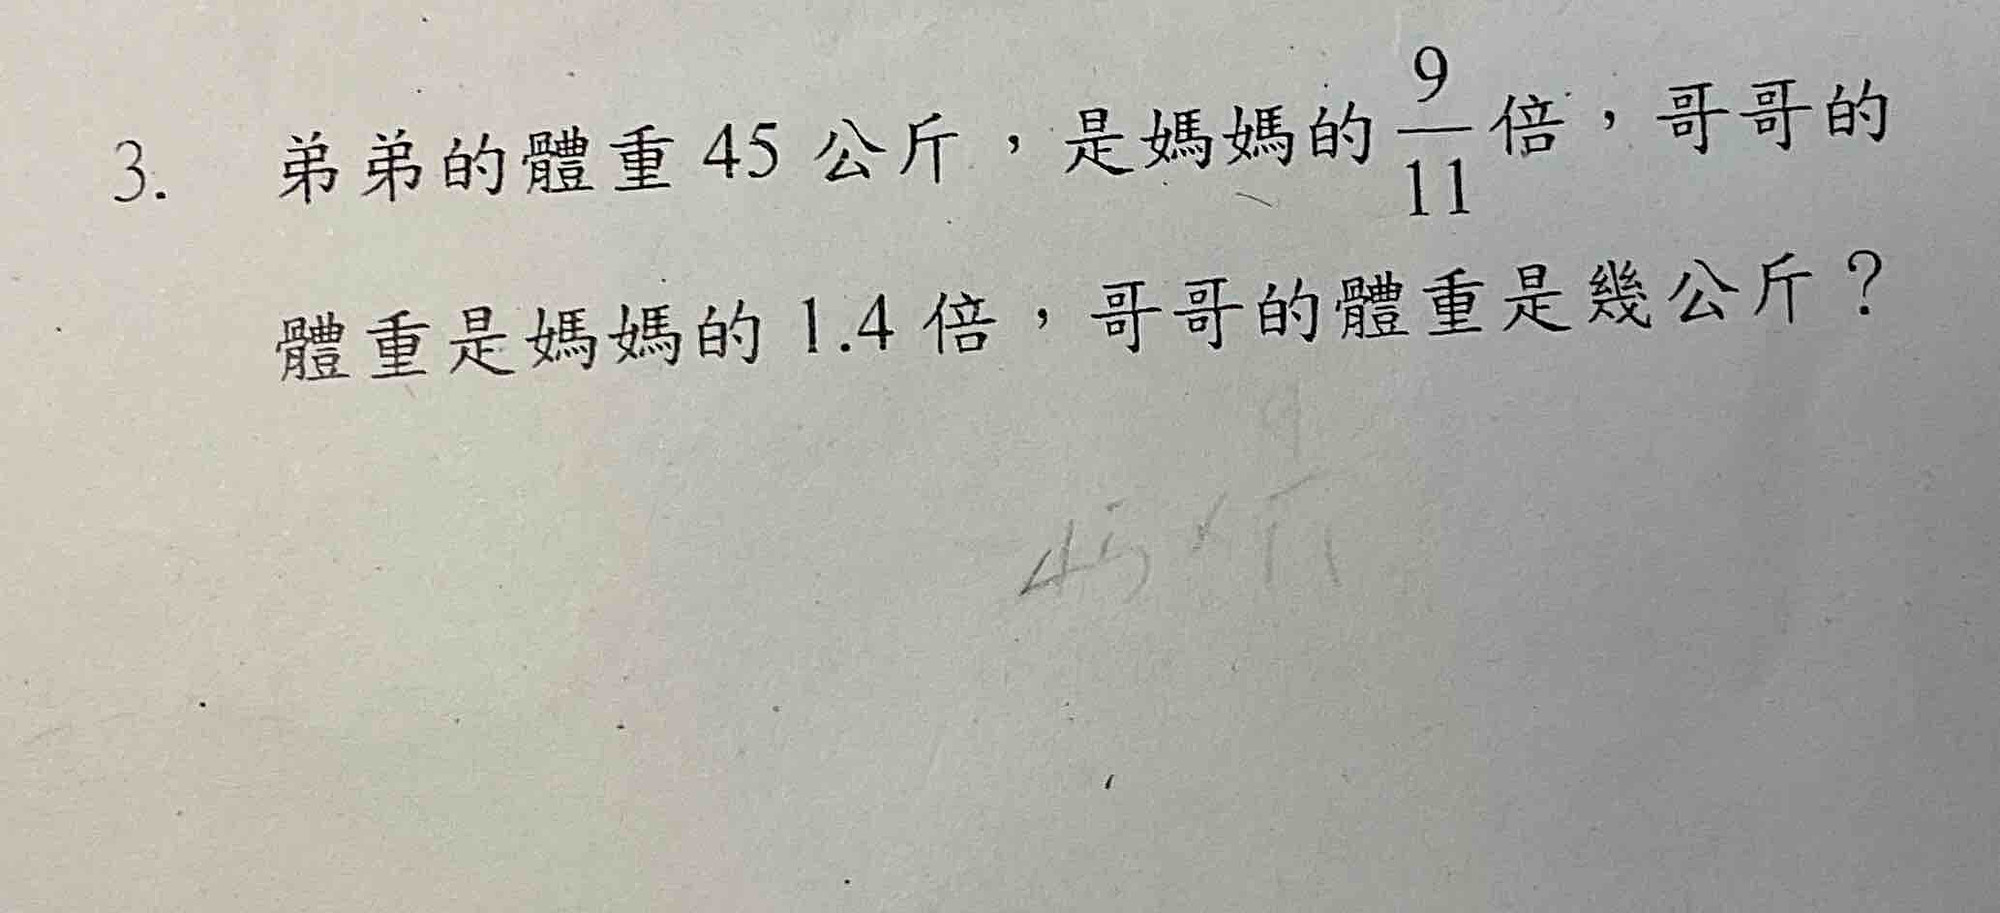 3. 弟弟的體重 45 公斤，是媽媽的 9/11 倍，哥哥的
體重是媽媽的 1.4 倍，哥哥的體重是幾公斤？
45 × 9/11